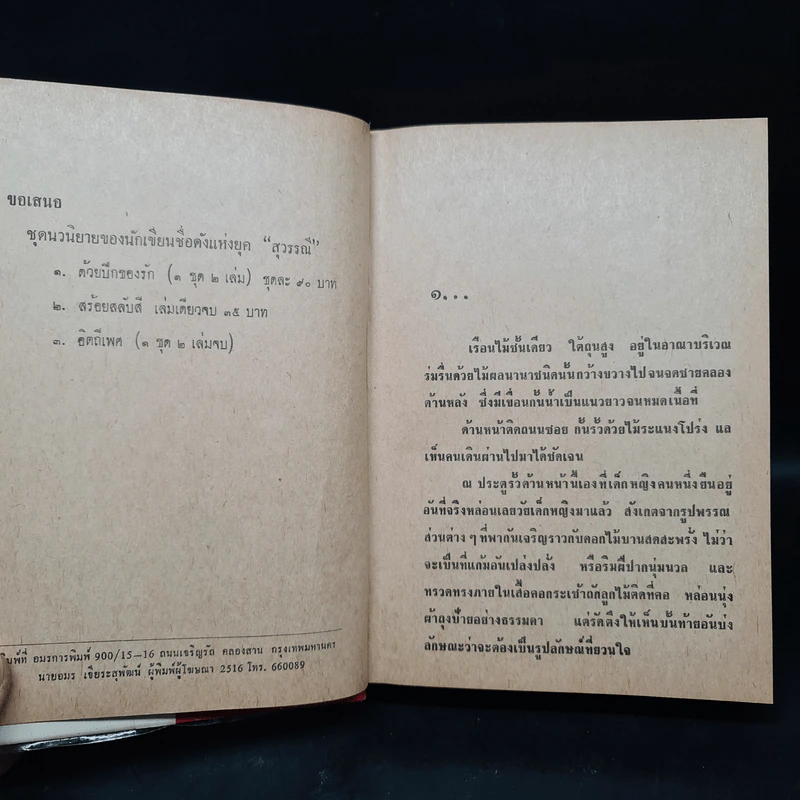 ขอเสนอ
ชุดนวนิยายของนักเขียนชื่อดังแห่งยุค “สุวรรณี”
๑. ด้วยปีกของรัก (๑ ชุด ๒ เล่ม) ชุดละ ๙๐ บาท
๒. สร้อยสลับสี เล่มเดียวจบ ๓๕ บาท
๓. อิตถีเพศ (๑ ชุด ๒ เล่มจบ)
พิมพ์ที่ อมรการพิมพ์ 900/15–16 ถนนเจริญรัถ คลองสาน กรุงเทพมหานคร
นายอมร เจียระสุพัฒน์ ผู้พิมพ์ผู้โฆษณา 2516 โทร. 660089
๑...
เรือนไม้ชั้นเดียว ใต้ถุนสูง อยู่ในอาณาบริเวณ
ร่มรื่นด้วยไม้ผลนานาชนิดนั้นกว้างขวางไปจนจดชายคลอง
ด้านหลัง ซึ่งมีเขื่อนกั้นน้ำเป็นแนวยาวจนหมดเนื้อที่
ด้านหน้าติดถนนซอย กั้นรั้วด้วยไม้ระแนงโปร่ง แล
เห็นคนเดินผ่านไปมาได้ชัดเจน
ณ ประตูรั้วด้านหน้านี้เองที่เด็กหญิงคนหนึ่งยืนอยู่
อันที่จริงหล่อนเลยวัยเด็กหญิงมาแล้ว สังเกตจากรูปพรรณ
ส่วนต่าง ๆ ที่พากันเจริญราวกับดอกไม้บานสดสะพรั่ง ไม่ว่า
จะเป็นที่แก้มอันเปล่งปลั่ง หรือริมฝีปากนุ่มนวล และ
ทรวดทรงภายในเสื้อคอกระเช้าถักลูกไม้ติดที่คอ หล่อนนุ่ง
ผ้าถุงป้ายอย่างธรรมดา แต่รัดตึงให้เห็นบั้นท้ายอันบ่ง
ลักษณะว่าจะต้องเป็นรูปลักษณ์ที่ยวนใจ